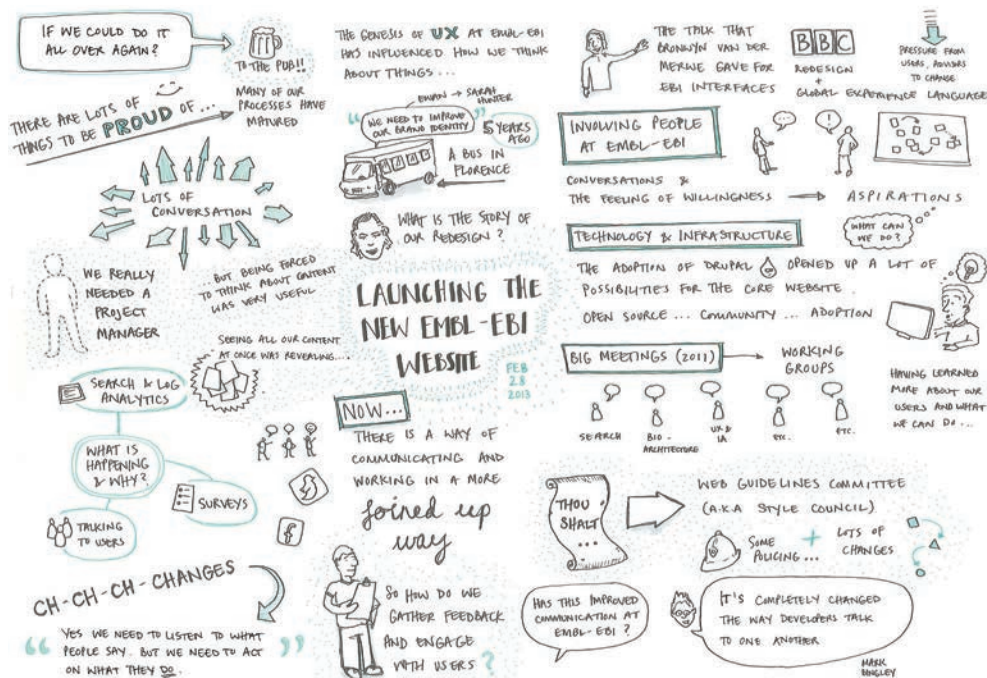 IF WE COULD DO IT
ALL OVER AGAIN?
TO THE PUB!!
MANY OF OUR
PROCESSES HAVE
MATURED
THERE ARE LOTS OF
THINGS TO BE PROUD OF...
LOTS OF
CONVERSATION
WE REALLY
NEEDED A
PROJECT
MANAGER
...BUT BEING FORCED
TO THINK ABOUT CONTENT
WAS VERY USEFUL
SEEING ALL OUR CONTENT
AT ONCE WAS REVEALING....
SEARCH & LOG
ANALYTICS
WHAT IS
HAPPENING
& WHY?
SURVEYS
TALKING
TO USERS
CH-CH-CH-CHANGES
"YES WE NEED TO LISTEN TO WHAT
PEOPLE SAY. BUT WE NEED TO ACT
ON WHAT THEY DO."
THE GENESIS OF UX AT EMBL-EBI
HAS INFLUENCED HOW WE THINK
ABOUT THINGS...
EWAN → SARAH
HUNTER
"WE NEED TO IMPROVE
OUR BRAND IDENTITY"
5 YEARS
AGO
A BUS IN
FLORENCE
WHAT IS THE STORY OF
OUR REDESIGN?
LAUNCHING THE
NEW EMBL-EBI
WEBSITE
FEB
28
2013
NOW...
THERE IS A WAY OF
COMMUNICATING AND
WORKING IN A MORE
joined up
way
SO HOW DO WE
GATHER FEEDBACK
AND ENGAGE
WITH USERS?
THE TALK THAT
BRONWYN VAN DER
MERWE GAVE FOR
EBI INTERFACES
BBC
REDESIGN
+
GLOBAL EXPERIENCE LANGUAGE
PRESSURE FROM
USERS, ADVISORS
TO CHANGE
INVOLVING PEOPLE
AT EMBL-EBI
... !
CONVERSATIONS &
THE FEELING OF WILLINGNESS → ASPIRATIONS
TECHNOLOGY & INFRASTRUCTURE
WHAT CAN
WE DO?
THE ADOPTION OF DRUPAL OPENED UP A LOT OF
POSSIBILITIES FOR THE CORE WEBSITE.
OPEN SOURCE... COMMUNITY... ADOPTION
BIG MEETINGS (2011) → WORKING
GROUPS
SEARCH
BIO-
ARCHITECTURE
UX &
IA
ETC.
ETC.
HAVING LEARNED
MORE ABOUT OUR
USERS AND WHAT
WE CAN DO...
THOU
SHALT
...
WEB GUIDELINES COMMITTEE
(A.K.A STYLE COUNCIL)
SOME
POLICING...
+ LOTS OF
CHANGES
HAS THIS IMPROVED
COMMUNICATION AT
EMBL-EBI?
IT'S COMPLETELY CHANGED
THE WAY DEVELOPERS TALK
TO ONE ANOTHER
MARK